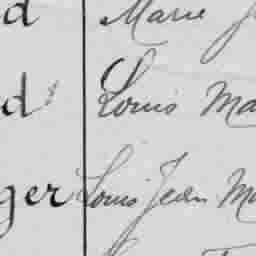 d Marie
d Louis Ma
ger Louis Jean Ma